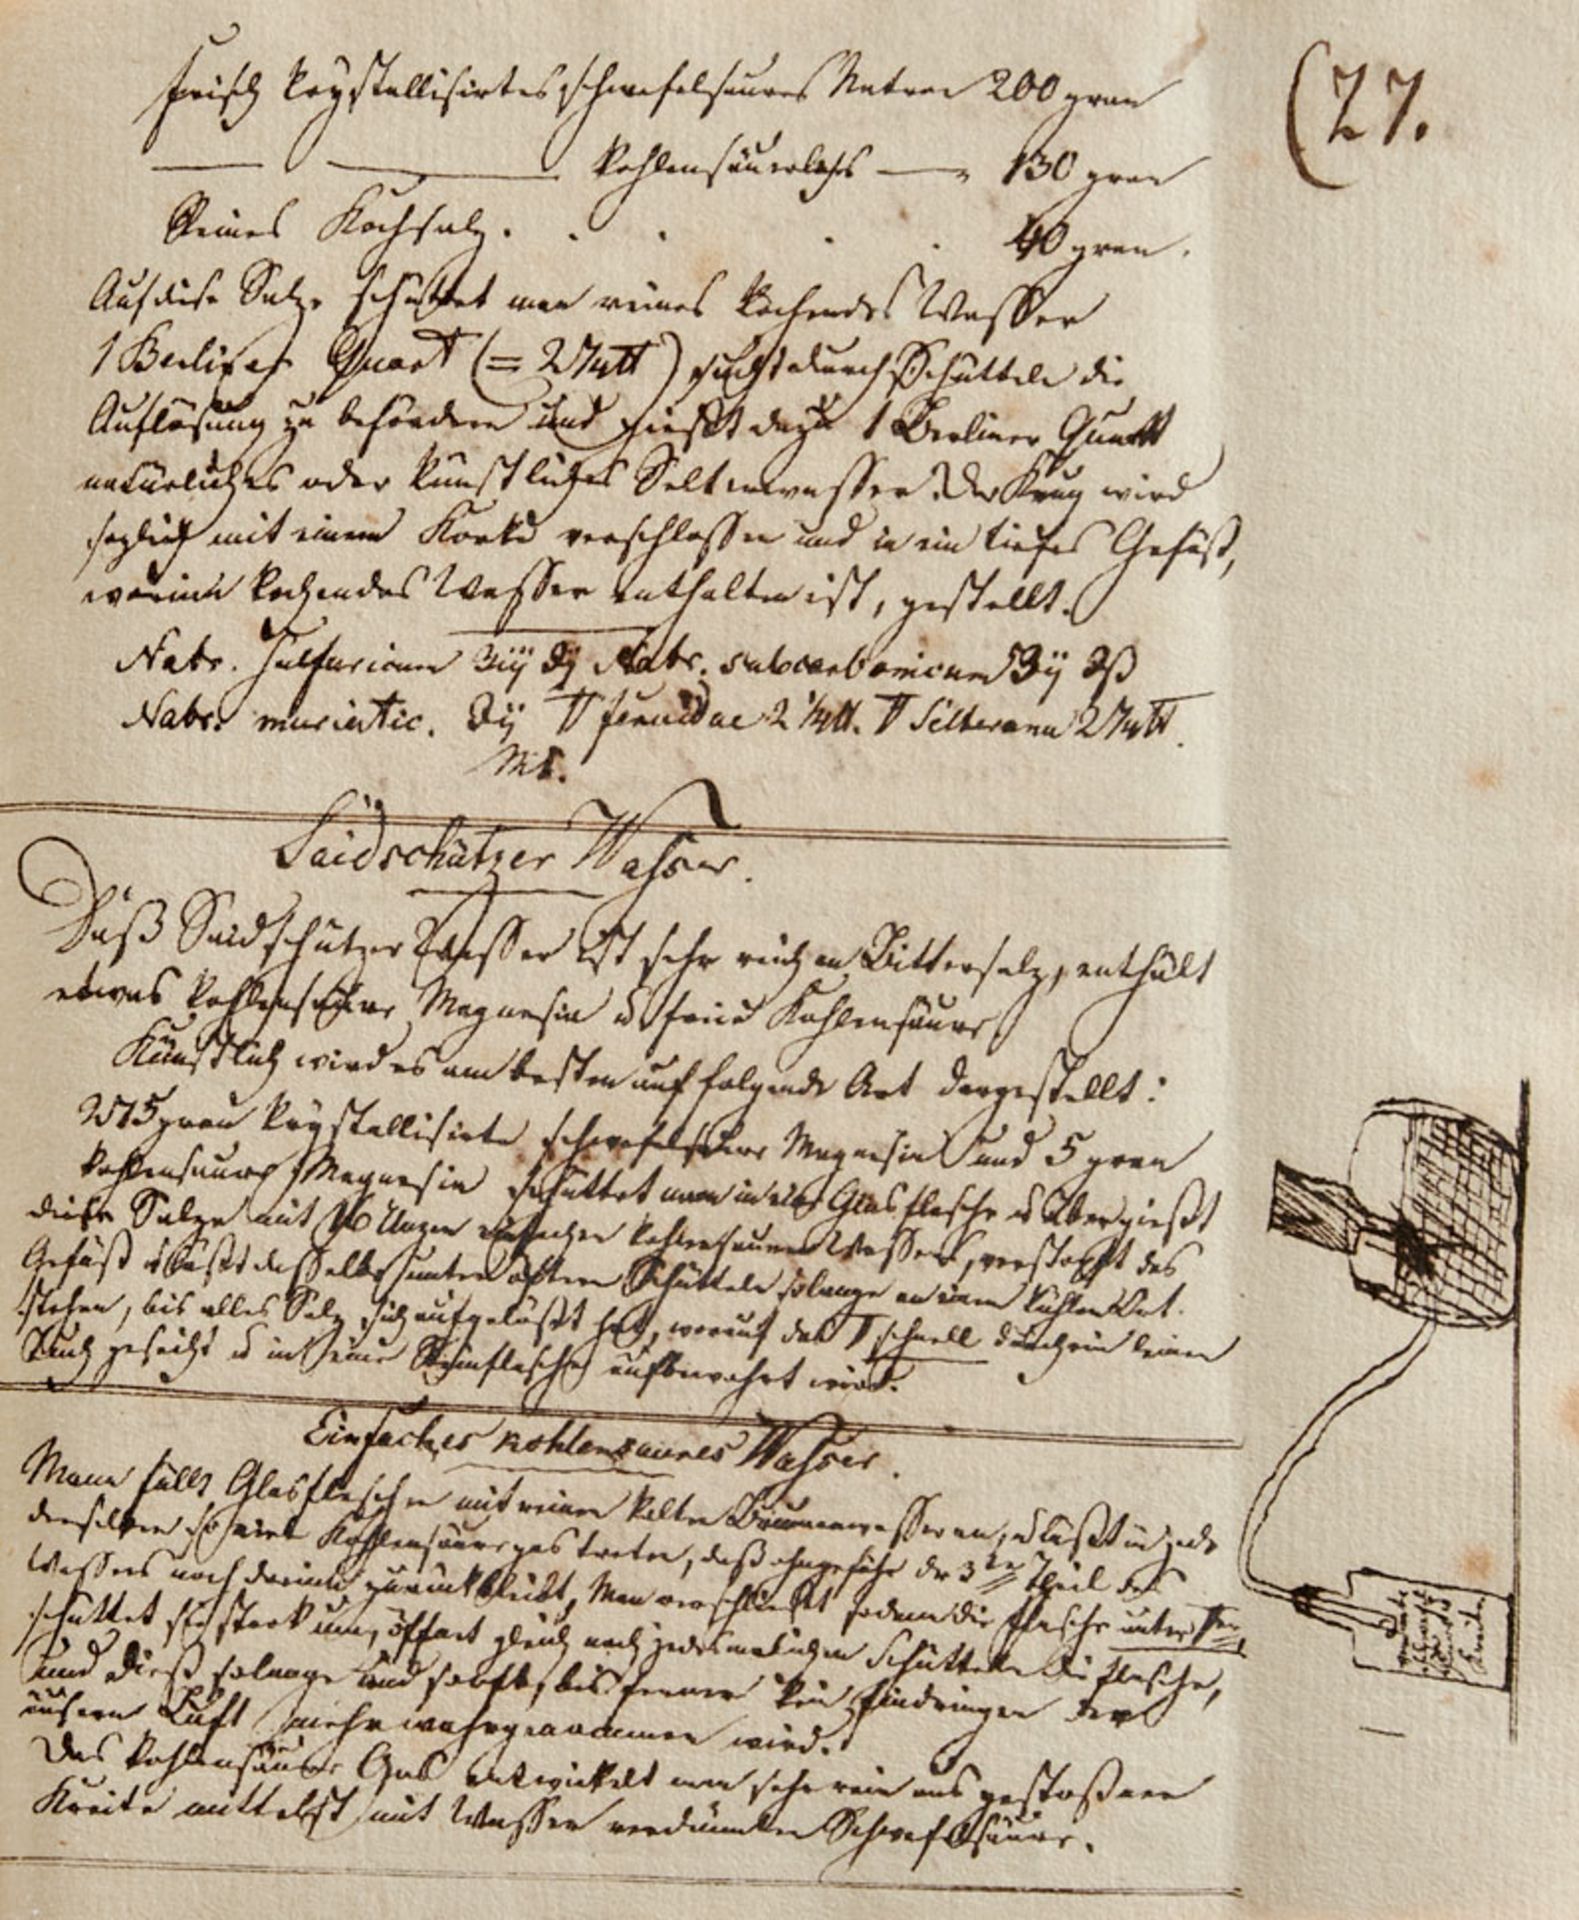 (27.
frisch krystallisirtes schwefelsaures Natron 200 gran
kohlensäuerliches — 130 gran
Reines Kochsalz. . . . . 40 gran.
Auf diese Salze schüttet man reines kochendes Wasser
1 Berliner Quart (= 2 1/4 ℔) sucht durch Schütteln die
Auflösung zu befördern und giesst dazu 1 Berliner Quart
natürliches oder künstliches Selterwasser. Der Krug wird
sogleich mit einem Korke verschlossen und in ein tiefes Gefäß,
worinn kochendes Wasser enthalten ist, gestellt.
Natr. sulfuricum ʒiij ℈j Natr. subcarbonicum ʒij ℈ß
Natr. muriatic. ℈ij fervidae 2 1/4 ℔. Selterana 2 1/4 ℔.
MS.
Saidschützer Wasser.
Daß Saidschützer Wasser ist sehr reich an Bittersalz, enthält
etwas kohlensaure Magnesia u freie Kohlensäure.
Künstlich wird es am besten auf folgende Art dargestellt:
gran krystallisirte schwefelsaure Magnesia und 5 gran
kohlensaure Magnesia schüttet man in eine Glasflasche u übergießt
diese Salze mit 16 Unzen einfachen kohlensauren Wassers, verstopft das
Gefäß u läßt dasselbe unter öftern Schütteln solange an einem kühlen Ort
stehen, bis alles Salz sich aufgelößt hat, worauf das schnell durch ein leinen
Tuch geseicht u in eine Steinflasche aufbewahrt wird.
Einfaches kohlensaures Wasser.
Mann füllt Glasflaschen mit reinem kalten Brunnenwasser an, u läßt in jede
derselben so viel Kohlensäuregas treten, daß ohngefähr der 3te Theil des
Wassers noch darinn zurückbleibt, Man verschließt sodann die Flasche unter
schüttet sie stark um, öffnet gleich nach jedesmaligem Schütteln die Flasche,
und dieß solange und so oft, bis ferner kein Eindringen der
äusern Luft mehr wahrgenommen wird.
Das kohlensaure Gas entwickelt man sehr rein aus gestoßener
Kreite mittelst mit Wasser verdünnter Schwefelsäure.